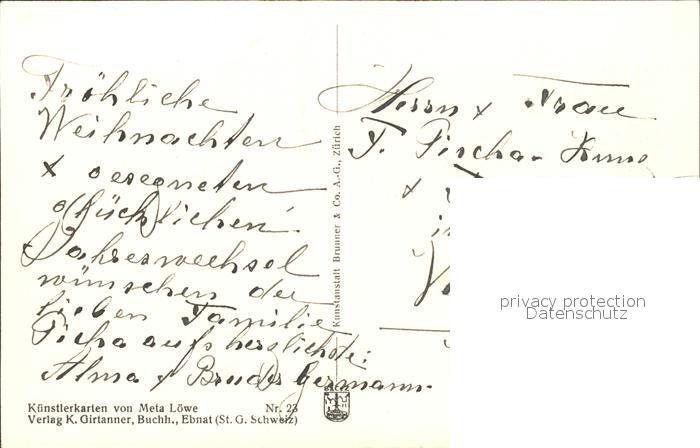 Fröhliche
Weihnachten
x gesegneten
glücklichen
Jahreswechsel
wünschen der
lieben Familie
aufs herzlichste:
Alma x Bruder Germann.
Herrn x Frau
T.
x
Kunstanstalt Brunner & Co. A.-G., Zürich
privacy protection
Datenschutz
Künstlerkarten von Meta Löwe Nr. 23
Verlag K. Girtanner, Buchh., Ebnat (St. G. Schweiz)